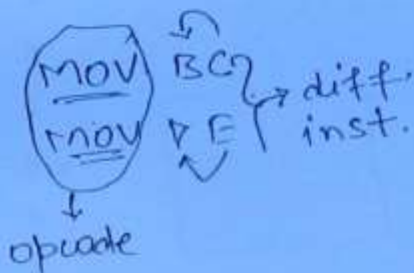 MOV BC
mov D E
diff.
inst.
opcode